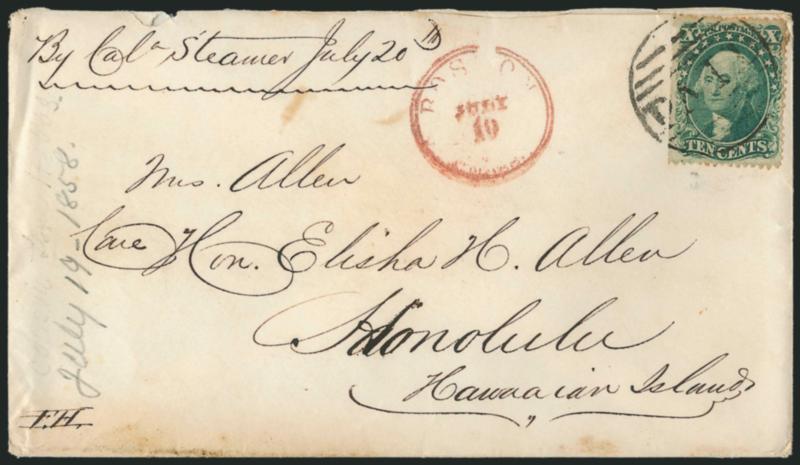 By Cala Steamer July 20th
BOSTON
JULY
19
X X
TEN CENTS
Mrs. Allen
Care Hon. Elisha H. Allen
Honolulu
Hawaaian Islands
July 19-1858.
F.H.